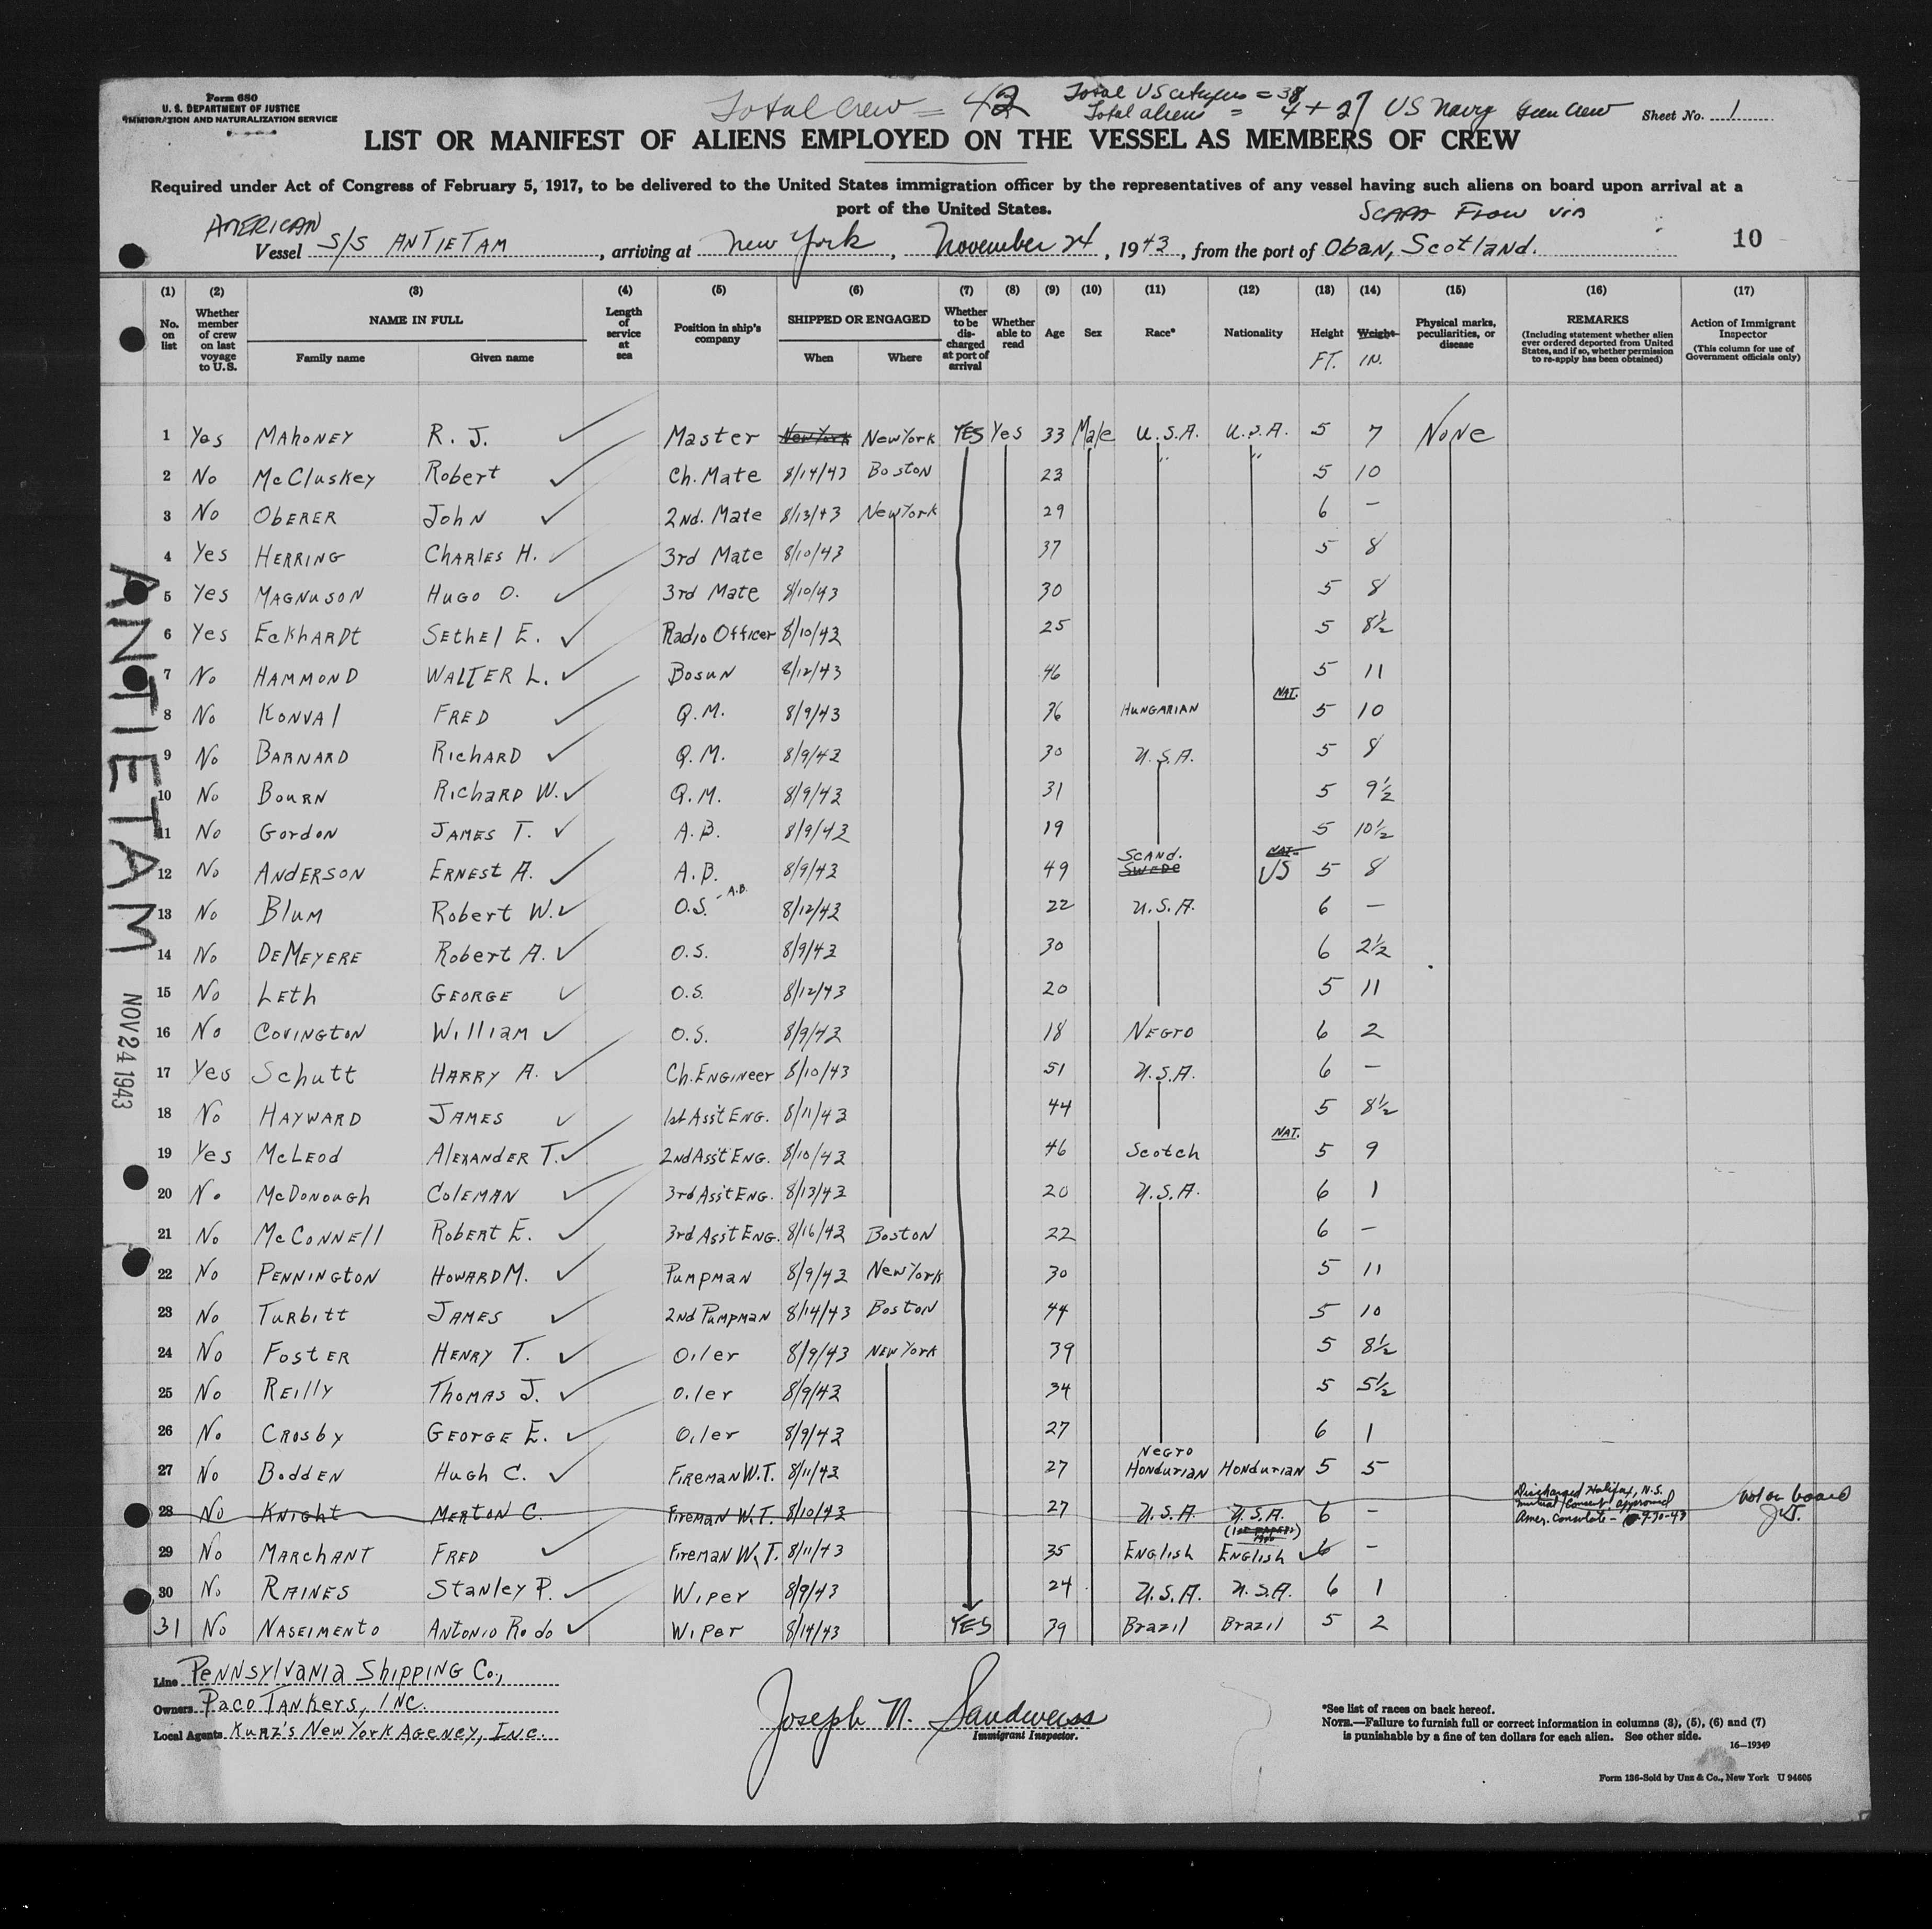 Form 680
U. S. DEPARTMENT OF JUSTICE
IMMIGRATION AND NATURALIZATION SERVICE
Total Crew = 42
Total US citizens = 38
Total aliens = 4 + 27 US Navy Gun Crew
Sheet No. 1
LIST OR MANIFEST OF ALIENS EMPLOYED ON THE VESSEL AS MEMBERS OF CREW
Required under Act of Congress of February 5, 1917, to be delivered to the United States immigration officer by the representatives of any vessel having such aliens on board upon arrival at a
port of the United States.
AMERICAN Scapa Flow via
Vessel S/S ANTIETAM, arriving at New York, November 24, 1943, from the port of Oban, Scotland. 10
(1) (2) (3) (4) (5) (6) (7) (8) (9) (10) (11) (12) (13) (14) (15) (16) (17)
No. on list
Whether member of crew on last voyage to U.S.
NAME IN FULL
Family name Given name
Length of service at sea
Position in ship's company
SHIPPED OR ENGAGED
When Where
Whether to be discharged at port of arrival
Whether able to read
Age
Sex
Race*
Nationality
Height FT.
Weight IN.
Physical marks, peculiarities, or disease
REMARKS
(Including statement whether alien ever ordered deported from United States, and if so, whether permission to re-apply has been obtained)
Action of Immigrant Inspector
(This column for use of Government officials only)
1 Yes MAHONEY R. J. Master New York New York YES Yes 33 Male U.S.A. U.S.A. 5 7 None
2 No McCluskey Robert Ch. Mate 8/14/43 Boston 23 " " 5 10
3 No OBERER John 2nd. Mate 8/13/43 New York 29 6 —
4 Yes HERRING CHARLES H. 3rd Mate 8/10/43 37 5 8
5 Yes MAGNUSON HUGO O. 3rd Mate 8/10/43 30 5 8
6 Yes EckhARDt SEThEl E. Radio Officer 8/10/43 25 5 8½
7 No HAMMOND WALTER L. Bosun 8/12/43 46 5 11
8 No KONVAl FRED Q.M. 8/9/43 36 HUNGARIAN NAT. 5 10
9 No BARNARD RichARD Q.M. 8/9/43 30 U.S.A. 5 8
10 No BOURN RichARD W. Q.M. 8/9/43 31 5 9½
11 No GORDON JAMES T. A.B. 8/9/43 19 5 10½
12 No ANDERSON ERNEST A. A.B. 8/9/43 49 SCAND. SWEDE NAT. US 5 8
13 No BLUM Robert W. O.S. - A.B. 8/12/43 22 U.S.A. 6 —
14 No DEMEYERE Robert A. O.S. 8/9/43 30 6 2½
15 No LETH GEORGE O.S. 8/12/43 20 5 11
16 No COVINGTON William O.S. 8/9/43 18 NEGRO 6 2
17 Yes Schutt HARRY A. Ch. ENGINEER 8/10/43 51 U.S.A. 6 —
18 No HAYWARD JAMES 1st Ass't ENG. 8/11/43 44 5 8½
19 Yes McLEOD ALEXANDER T. 2nd Ass't ENG. 8/10/43 46 Scotch NAT. 5 9
20 No McDONOUGH COLEMAN 3rd Ass't ENG. 8/13/43 20 U.S.A. 6 1
21 No McCONNEll ROBERT E. 3rd Ass't ENG. 8/16/43 Boston 22 6 —
22 No PENNINGTON HOWARD M. PUMPMAN 8/9/43 New York 30 5 11
23 No TURbitt JAMES 2nd PUMPMAN 8/14/43 Boston 44 5 10
24 No FOSTER HENRY T. Oiler 8/9/43 NEW YORK 39 5 8½
25 No REILLY THOMAS J. Oiler 8/9/43 34 5 5½
26 No CROSBY GEORGE E. Oiler 8/9/43 27 6 1
27 No BODDEN Hugh C. FIREMAN W.T. 8/11/43 27 NEGRO HONDURIAN HONDURIAN 5 5
28 No KNIGHT MERTON C. FIREMAN W.T. 8/10/43 27 U.S.A. U.S.A. 6 — Discharged Halifax, N.S. mutual consent approved Amer. Consulate - 9-30-43 not on board
29 No MARCHANT FRED FIREMAN W.T. 8/11/43 35 ENGLISH ENGLISH 6 —
30 No RAINES Stanley P. WIPER 8/9/43 24 U.S.A. U.S.A. 6 1
31 No NASEIMENTO ANTONIO R. do WIPER 8/14/43 YES 39 Brazil Brazil 5 2
ANTIETAM
NOV 24 1943
Line PENNSYLVANIA SHIPPING Co.,
Owners PACO TANKERS, INC.
Local Agents KURZ'S NEW YORK AGENCY, INC.
Joseph N. Sandweiss
Immigrant Inspector.
*See list of races on back hereof.
NOTE.—Failure to furnish full or correct information in columns (3), (5), (6) and (7)
is punishable by a fine of ten dollars for each alien. See other side.
16—19349
Form 136-Sold by Unz & Co., New York U 94605